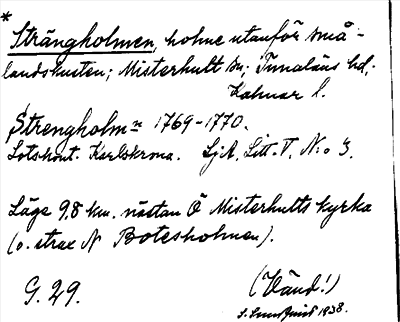 *
Strängholmen, holme utanför små-
landskusten; Misterhult sn; Tunaläns hd;
Kalmar l.
Strengholmn 1769-1770.
Lotskont. Karlskrona. SjA, Litt. T, N:o 3.
Läge 9,8 km. nästan Ö Misterhults kyrka
(o. strax N Botesholmen).
G. 29.
(Vänd!)
1938.